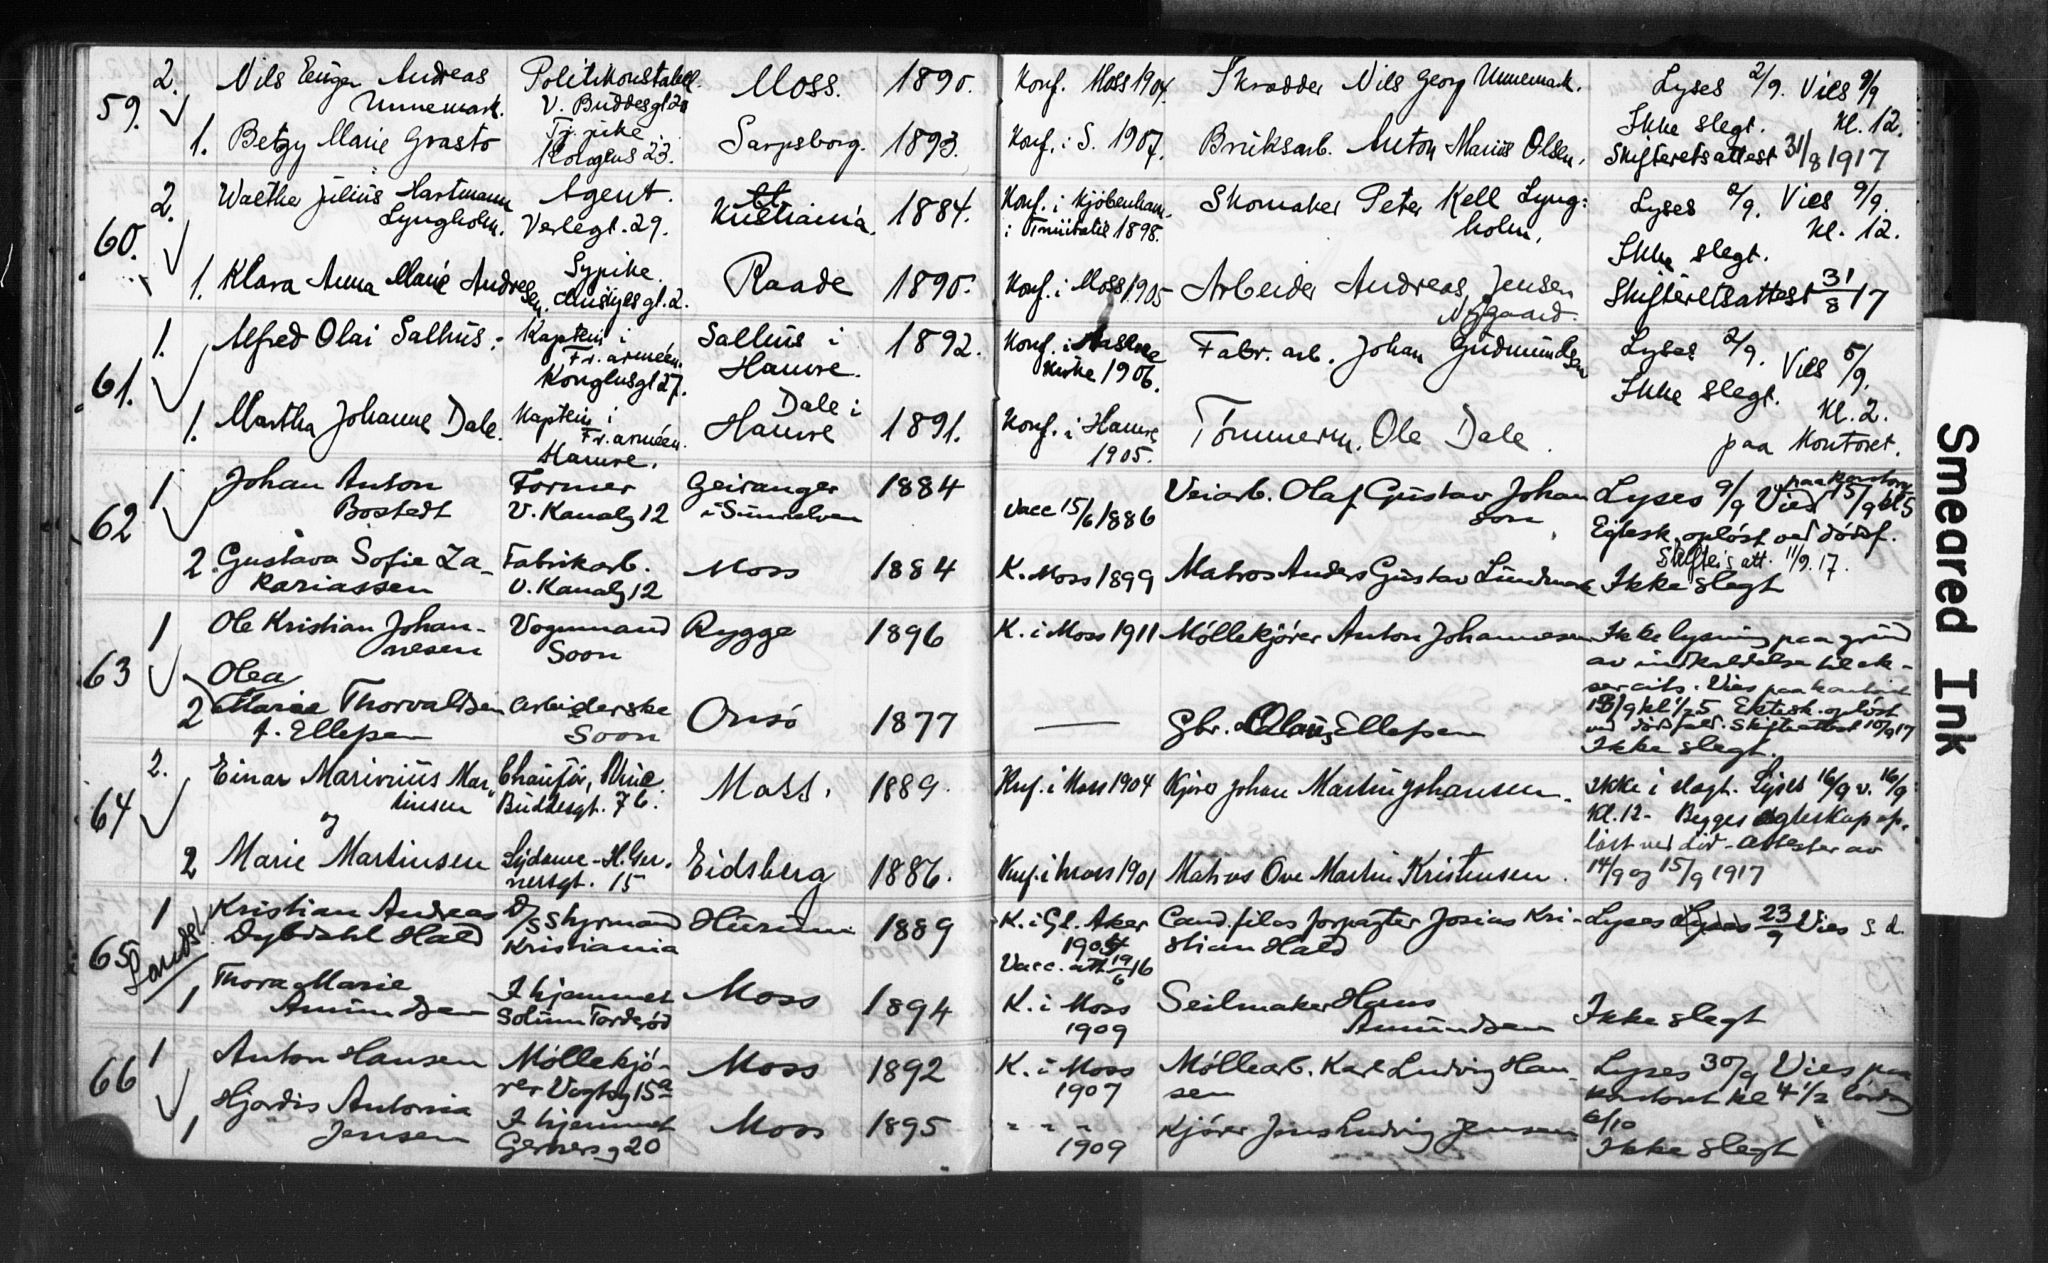 59. 2. Nils Eüger Andreas Unnemark. Politikonstabel. V. Büddesgt 20 Moss. 1890. Konf. Moss 1904. Skrædder Nils Georg Unnemark. Lyses 2/9. Vies 9/9 Kl. 12.
Ikke slegt.
1. Betzy Marie Grastø Tj. pike Konglus 23. Sarpsborg. 1893. Konf. i S. 1907. Brüksarb. Anton Marius Olsen. Skifteretsattest 31/8 1917
60. 2. Walthe Jülius Hartmann Lyngholm. Agent. Verlegt. 29. Kristiania. 1884. Konf. i Kjöbenhavn. i 1898. Skomaker Peter Kell Lyngholm. Lyses 2/9. Vies 9/9. Kl. 12.
Ikke slegt.
1. Klara Anna Marie Andresen. Sypike. gt. 2. Raade 1890. Konf. i Moss 1905 Arbeider Andreas Jensen Nygaard. Skifteretsattest 31/8 17
61. 1. Alfred Olai Salhüs. Kaptein i Fr. arméen. Konglusgt 27. Salhüs i Hamre. 1892. Konf. i Kirke 1906. Fabr. arb. Johan Güdmündsen Lyses 2/9. Vies 5/9.
Ikke slegt. Kl. 2.
1. Martha Johanne Dale. Kaptein i Fr. arméen. Hamre. Dale i Hamre 1891. Konf. i Hamre 1905. Tömmerm. Ole Dale. paa Kontoret.
62 1 Johan Anton Bostedt Former V. Kanalg 12 Geiranger i Sünnelven 1884 Vacc 15/6 1886 Veiarb. Olaf Güstav Johanson Lyses 9/9 Vies paa kontoret 15/9 kl 5
Egtesk. opløst ved dödsf.
Skifteratt. 11/9. 17.
2 Güstava Sofie Zakariassen Fabrikarb. V. Kanalg 12 Moss 1884 K. Moss 1899 Matros Anders Güstav Lündmark Ikke slegt
63 1 Ole Kristian Johannesen Vognmand Soon Rygge 1896 K. i Moss 1911 Møllekjører Anton Johannesen Ikke lysning paa gründ
av indkaldelse til eksercits. Vies paa kontoret
2 Olea Marie Thorvaldsen f. Ellefsen Arbeiderske Soon Onsö 1877 — Gbr. Olaüs Ellefsen 13/9 kl 1/2 5 Ektesk. opløst
ved dödsfald. Skifteattest 10/9 17
Ikke slegt.
64 2. Einar Marinius Martinsen Chaufför, Princ. Büddesgt. 7 b. Moss. 1889. Knf. i Moss 1904 Kjører Johan Martin Johansen. Ikke i slegt. Lyses 16/9 v. 16/9
og Kl. 12 - Begges egteskap op-
löst ved död - Attester av
2 Marie Martinsen Sydame - H. Gernersgt. 15 Eidsberg 1886. Knf. i Moss 1901 Matros Ove Martin Kristensen. 14/9 og 15/9 1917
65 1 Kristian Andreas Dybdahl Hald D/S Styrmand Kristiania Hürüm 1889 K. i Gl. Aker 1904 Vacc. att. 19/6 16 Cand. filos forpagter Josias Kristian Hald Lyses 23/9 Vies s. d.
1 Thora Marie Amündsen I hjemmet Solum Torderød Moss 1894 K. i Moss 1909 Seilmaker Hans Amündsen Ikke slegt
66 1 Anton Hansen Møllekjører Vogtsg 15a Moss 1892 K. i Moss 1907 Møllearb. Karl Ludvig Hansen Lyses 30/9 Vies paa
kontoret kl 4 1/2 lördag
6/10
1 Hjordis Antonia Jensen I hjemmet Gernersg 20 Moss 1895 " " " 1909 Kjører Jens Ludvig Jensen Ikke slegt
Smeared Ink